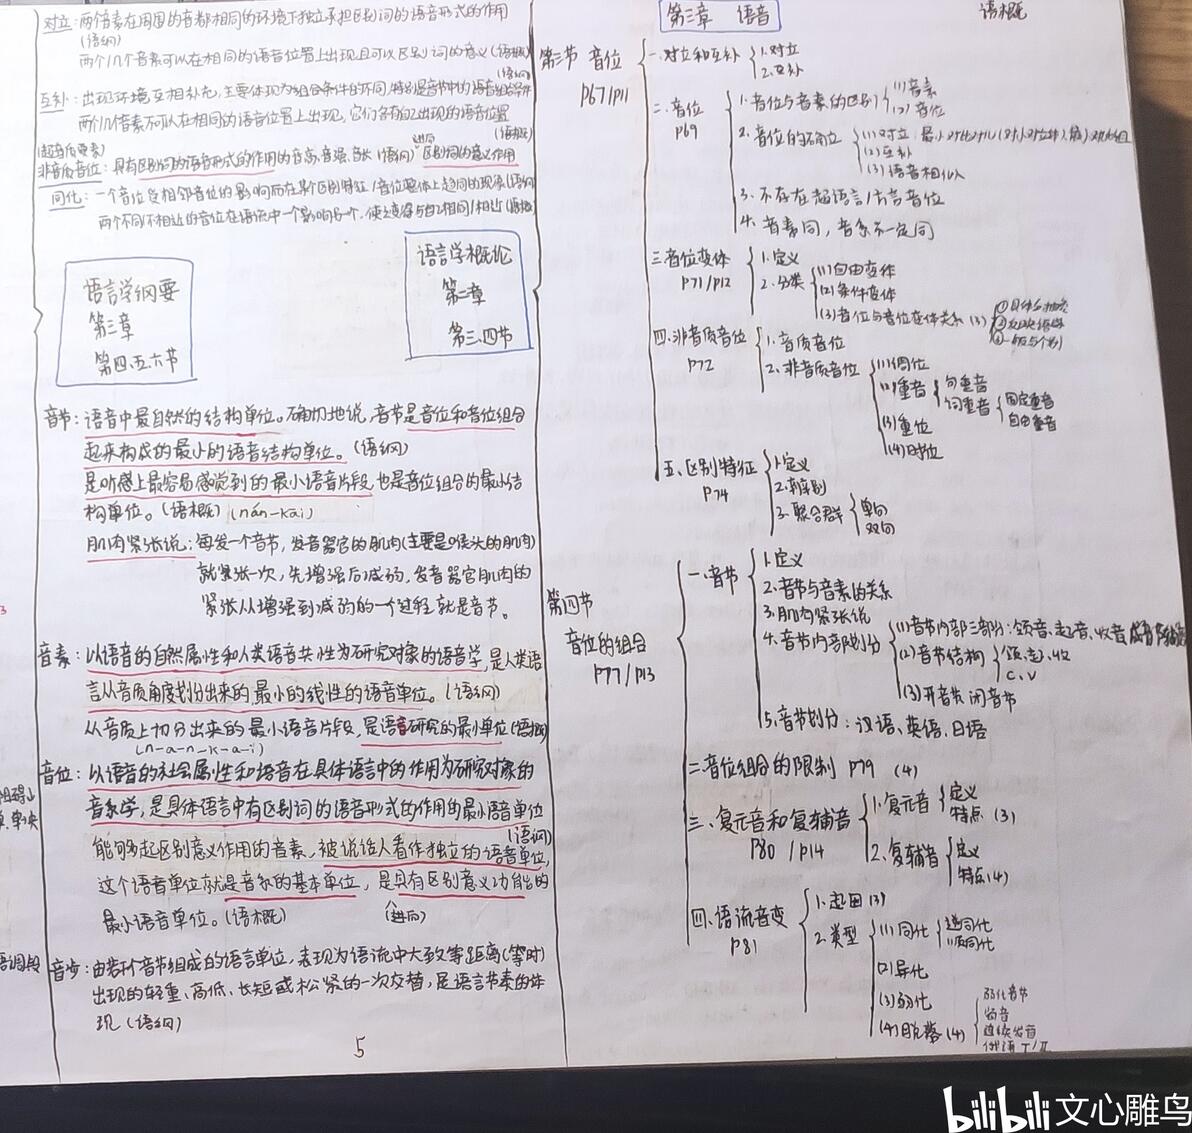 对立：两个音素在周围的音都相同的环境下独立承担区别词的语音形式的作用
(语纲)
两个/几个音素可以在相同的语音位置上出现且可以区别词的意义(语概)
互补：出现环境互相补充，主要体现为组合条件的不同，特别是音节中的语音组合条件
(语纲)
两个/几个音素不可以在相同的语音位置上出现，它们各有自己出现的语音位置
(语概)
(超音质要素)
非音质音位：具有区别词的语音形式的作用的音高、音强、音长(语纲) 区别词的意义作用
同化：一个音位受相邻音位的影响而在某个区别特征/音位整体上趋同的现象(语纲)
两个不同不相近的音位在语流中一个影响另一个，使之变得与自己相同/相近(语概)
语言学纲要
第三章
第四、五、六节
语言学概论
第二章
第三、四节
音节：语音中最自然的结构单位。确切地说，音节是音位和音位组合
起来构成的最小的语音结构单位。(语纲)
是听感上最容易感觉到的最小语音片段，也是音位组合的最小结
构单位。(语概) (nán-kāi)
肌肉紧张说：每发一个音节，发音器官的肌肉(主要是喉头的肌肉)
就紧张一次，先增强后减弱，发音器官肌肉的
紧张从增强到减弱的一个过程就是音节。
音素：以语音的自然属性和人类语音共性为研究对象的语音学，是人类语
言从音质角度划分出来的最小的线性的语音单位。(语纲)
从音质上切分出来的最小语音片段，是语音研究的最小单位(语概)
(n-a-n-k-a-i)
音位：以语音的社会属性和语音在具体语言中的作用为研究对象的
音系学，是具体语言中有区别词的语音形式的作用的最小语音单位
(语纲)
能够起区别意义作用的音素，被说话人看作独立的语音单位，
这个语音单位就是音系的基本单位，是具有区别意义功能的
最小语音单位。(语概)
音步：由若干个音节组成的语言单位，表现为语流中大致等距离(等时)
出现的轻重、高低、长短或松紧的一次交替，是语言节奏的体
现(语纲)
5
第三章 语音
语概
第三节 音位
P67/P11
一、对立和互补
1.对立
2.互补
二、音位
P69
1.音位与音素的区别
(1)音素
(2)音位
2.音位的确立
(1)对立：最小对比对儿
(2)互补
(3)语音相似
3.不存在超语言/方言音位
4.音素同，音系不一定同
三、音位变体
P71/P12
1.定义
2.分类
(1)自由变体
(2)条件变体
(3)音位与音位变体关系(3)
四、非音质音位
P72
1.音质音位
2.非音质音位
(1)调位
(2)重音
句重音
词重音
固定重音
自由重音
(3)重位
(4)时位
五、区别特征
P74
1.定义
2.辨别
3.聚合群
单向
双向
第四节
音位的组合
P77/P13
一、音节
1.定义
2.音节与音素的关系
3.肌肉紧张说
4.音节内部划分
(1)音节内部三部分：领音、起音、收音
(2)音节结构
领、起、收
C、V
(3)开音节、闭音节
5.音节划分：汉语、英语、日语
二、音位组合的限制 P79 (4)
三、复元音和复辅音
P80/P14
1.复元音
定义
特点(3)
2.复辅音
定义
特点(4)
四、语流音变
P81
1.起因(3)
2.类型
(1)同化
逆同化
顺同化
(2)异化
(3)弱化
(4)脱落(4)
弱化音节
连续发音
bilibili 文心雕鸟